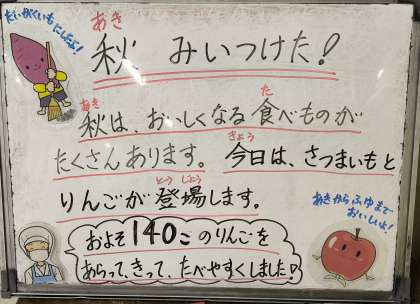 だいがくいもにしたよ!
秋 みいつけた!
あき
秋は、おいしくなる食べものが
あき
た
たくさんあります。今日は、さつまいもと
きょう
りんごが登場します。
とうじょう
あきからふゆまで
おいしいよ!
およそ140このりんごを
あらって、きって、たべやすくしました!